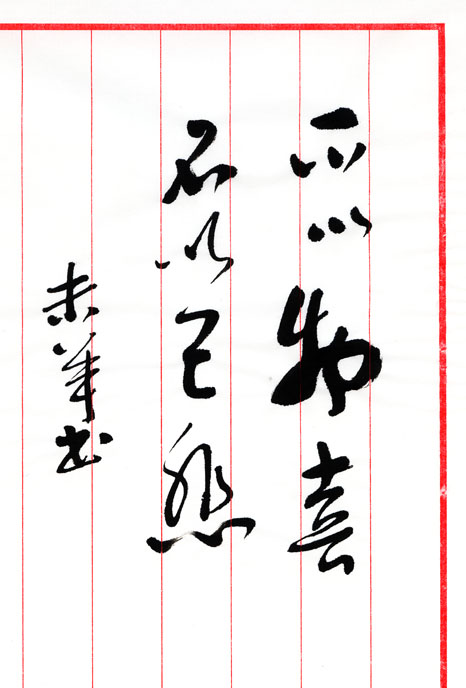 不以物喜
不以己悲
未羊书